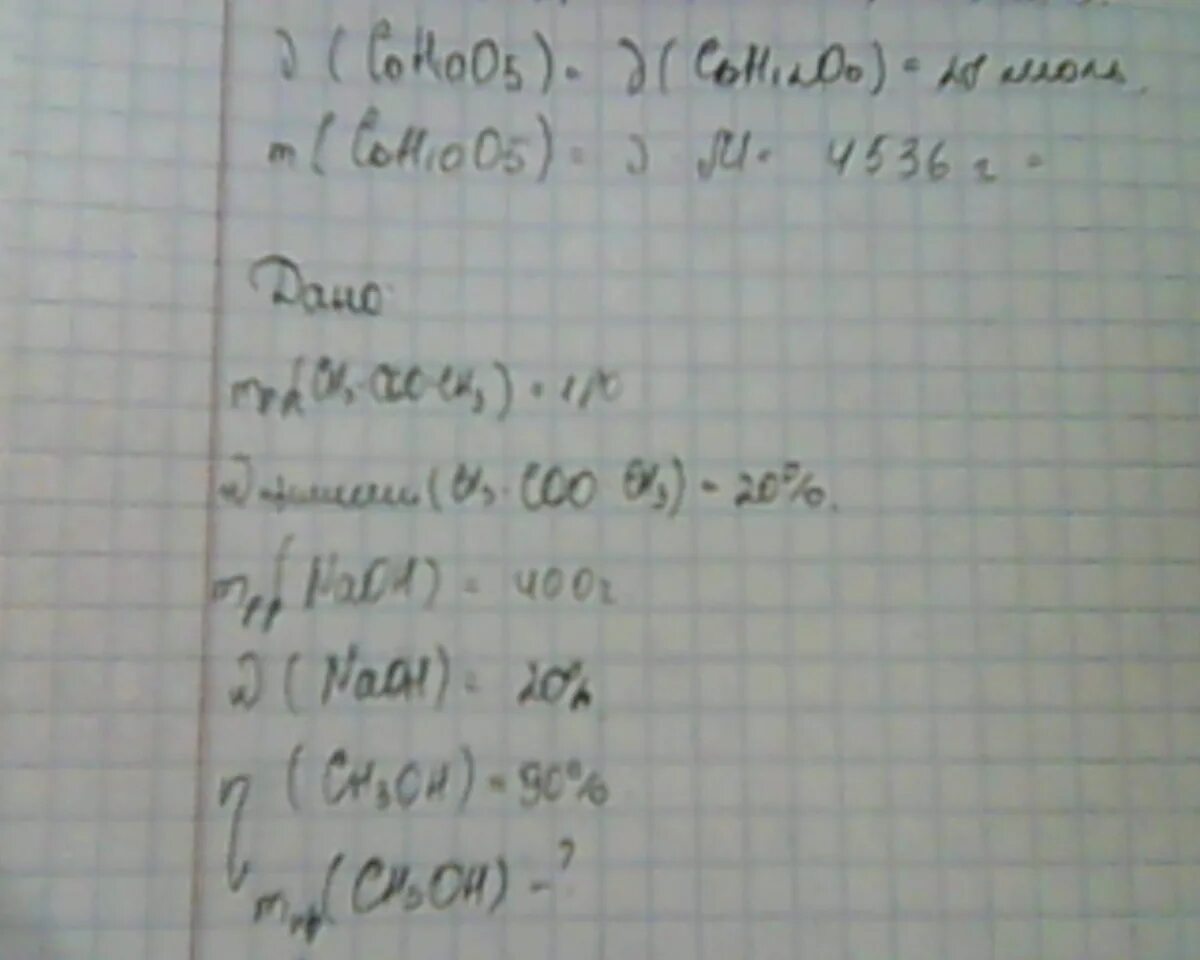 ν (C6H10O5) = ν (C6H12O6) = 28 моль.
m (C6H10O5) = ν M = 4536 г =
Дано
(CH3 COO CH3) =
(CH3 · COO CH3) = 20%.
mрр (NaOH) = 400 г
ω (NaOH) = 20%
η (CH3OH) = 90%
mпр (CH3OH) - ?